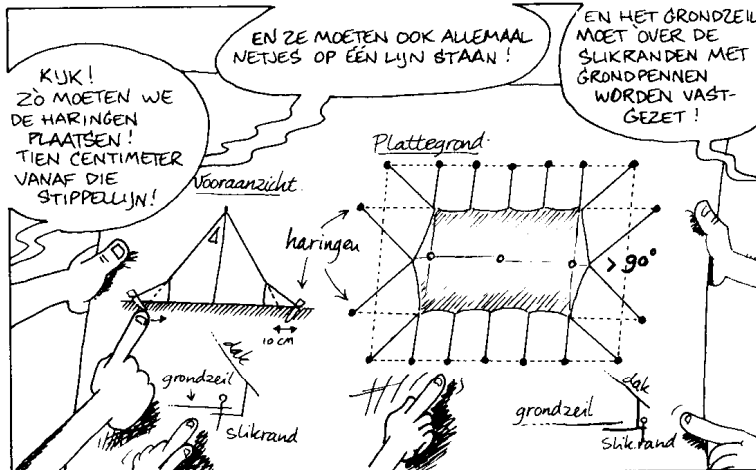 KIJK!
ZÒ MOETEN WE
DE HARINGEN
PLAATSEN!
TIEN CENTIMETER
VANAF DIE
STIPPELLIJN!
EN ZE MOETEN OOK ALLEMAAL
NETJES OP ÉÉN LIJN STAAN!
EN HET GRONDZEIL
MOET OVER DE
SLIKRANDEN MET
GRONDPENNEN
WORDEN VAST-
GEZET!
Vooraanzicht.
haringen
10 cm
dak
grondzeil
slikrand
Plattegrond.
> 90°
dak
grondzeil
slikrand